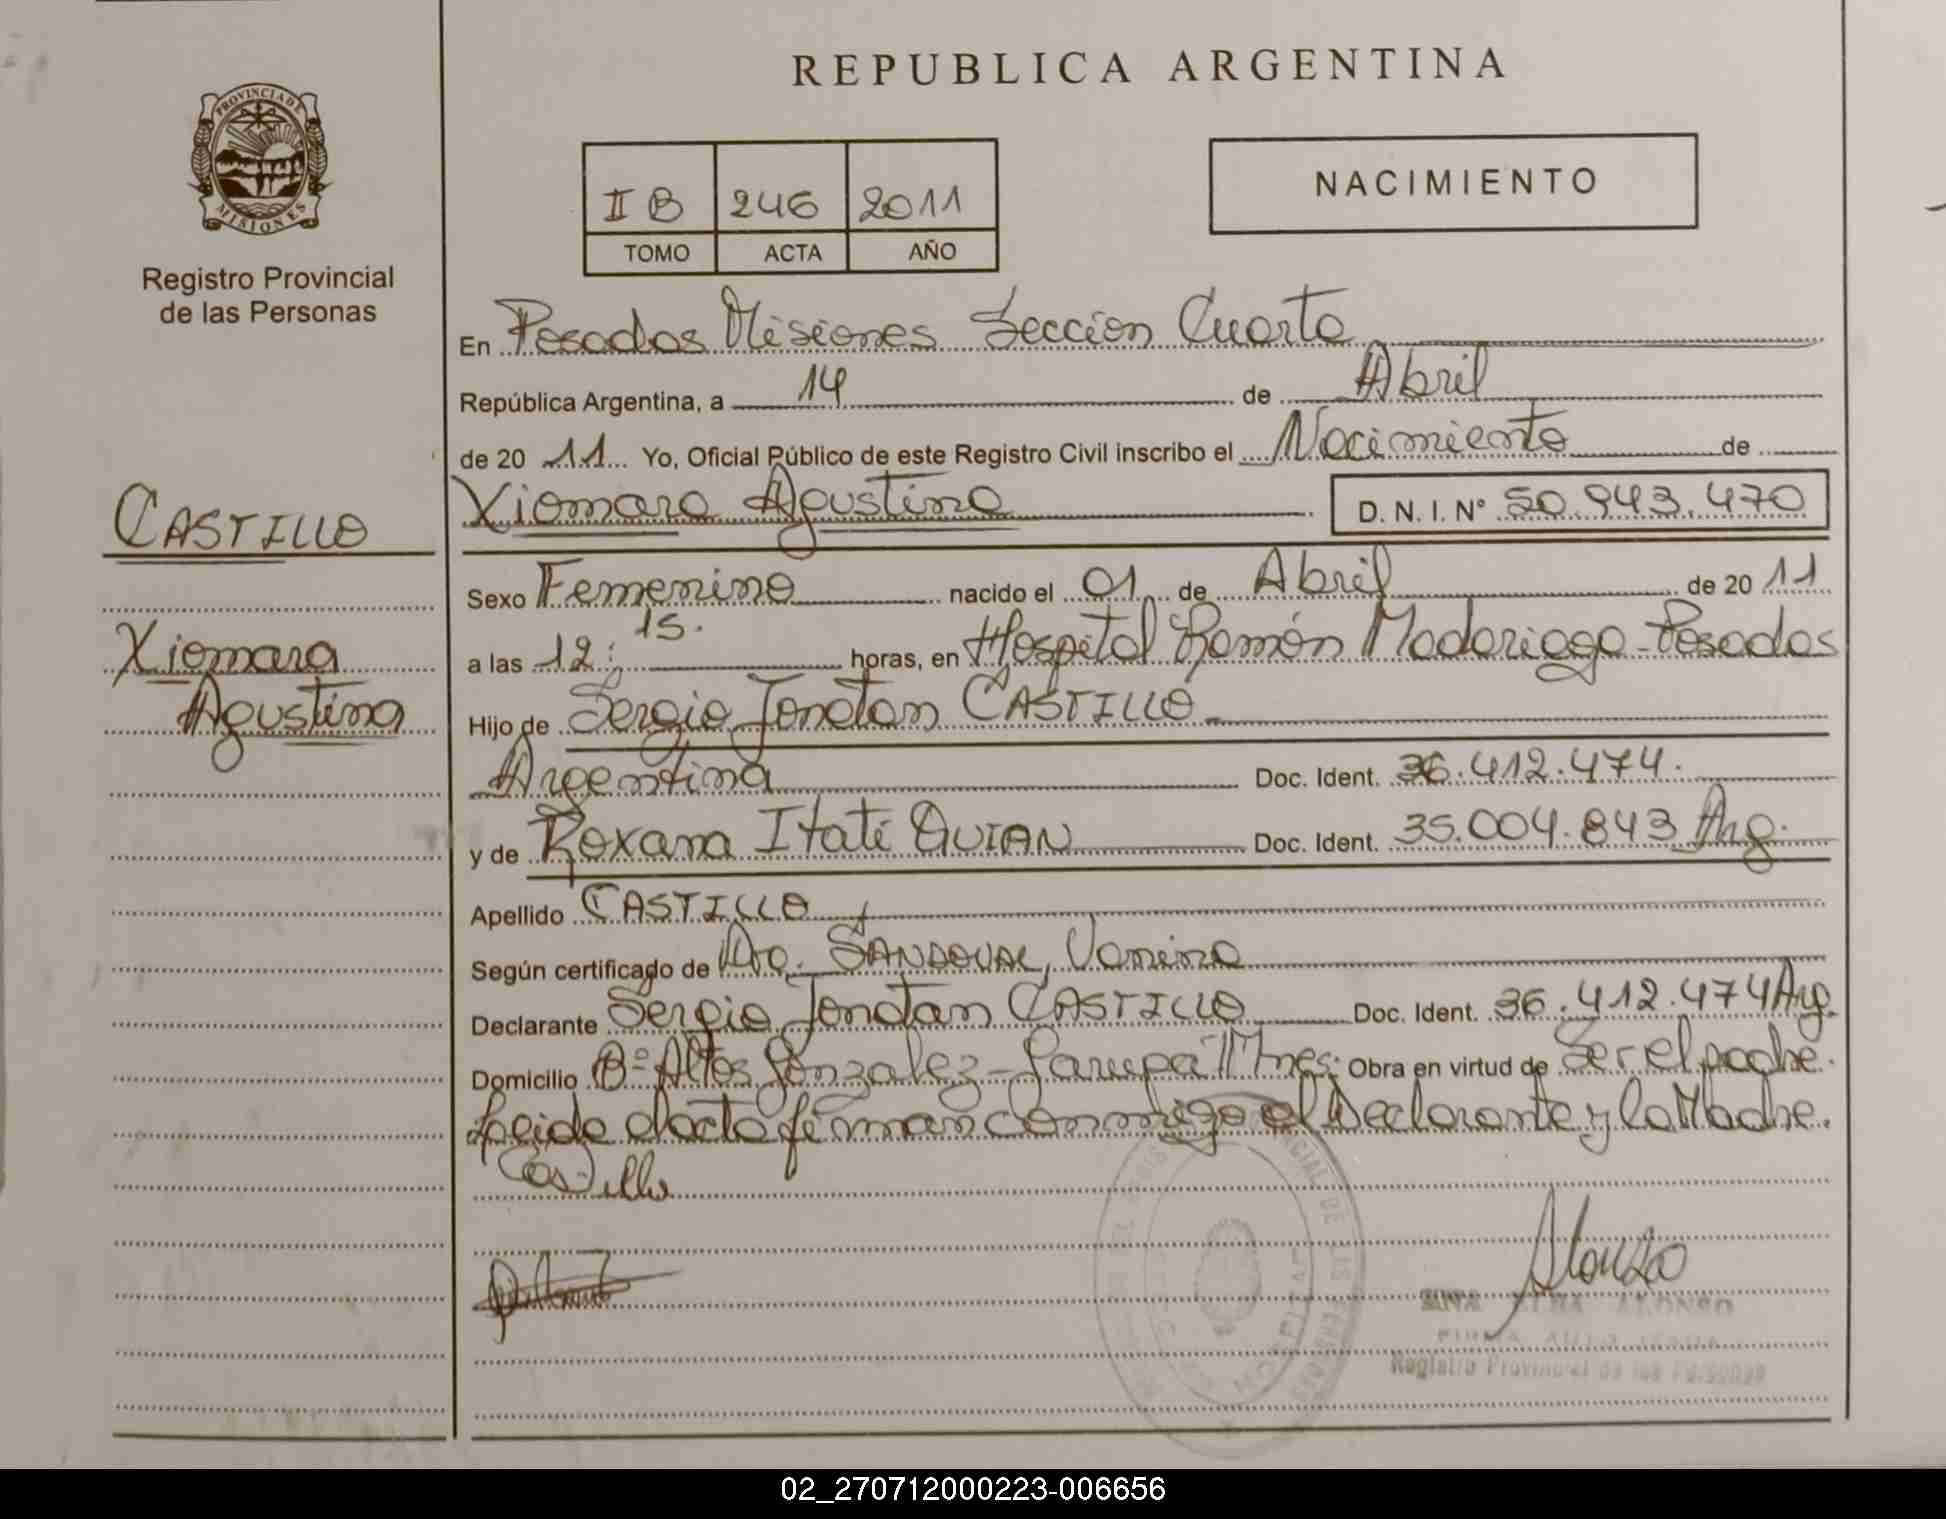 REPUBLICA ARGENTINA
PROVINCIA DE
MISIONES
Registro Provincial
de las Personas
II B 246 2011
TOMO ACTA AÑO
NACIMIENTO
En Posadas Misiones Sección Cuarta
República Argentina, a 14 de Abril
de 20 11 Yo, Oficial Público de este Registro Civil inscribo el Nacimiento de
Xiomara Agustina D. N. I. N° 50.943.470
CASTILLO
Xiomara
Agustina
Sexo Femenino nacido el 01 de Abril de 20 11
a las 12:15. horas, en Hospital Ramón Madariaga - Posadas
Hijo de Sergio Jonatan CASTILLO
Argentina Doc. Ident. 36.412.474.
y de Roxana Itati QUIAN Doc. Ident. 35.004.843 Arg.
Apellido CASTILLO
Según certificado de Dra. SANDOVAL, Vanina
Declarante Sergio Jonatan CASTILLO Doc. Ident. 36.412.474 Arg.
Domicilio B° Altos Gonzalez - Garupá Mnes. Obra en virtud de Ser el padre.
Leida el acta firman conmigo el Declarante y la Madre.
Castillo
Alonzo
ALBA ALONSO
Registro Provincial de las Personas
02_270712000223-006656